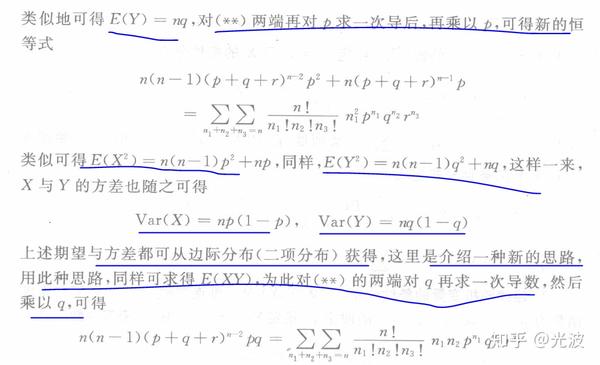 类似地可得 E(Y) = nq,对(**)两端再对 p 求一次导后,再乘以 p,可得新的恒
等式
n(n−1)(p+q+r)ⁿ⁻²p² + n(p+q+r)ⁿ⁻¹p
= ∑∑_{n₁+n₂+n₃=n} n!/(n₁!n₂!n₃!) n₁² p^{n₁} q^{n₂} r^{n₃}
类似可得 E(X²) = n(n−1)p² + np,同样,E(Y²) = n(n−1)q² + nq,这样一来,
X 与 Y 的方差也随之可得
Var(X) = np(1−p), Var(Y) = nq(1−q)
上述期望与方差都可从边际分布(二项分布)获得,这里是介绍一种新的思路,
用此种思路,同样可求得 E(XY),为此对(**)的两端对 q 再求一次导数,然后
乘以 q,可得
n(n−1)(p+q+r)ⁿ⁻²pq = ∑∑_{n₁+n₂+n₃=n} n!/(n₁!n₂!n₃!) n₁n₂ p^{n₁} q
知乎 @光波